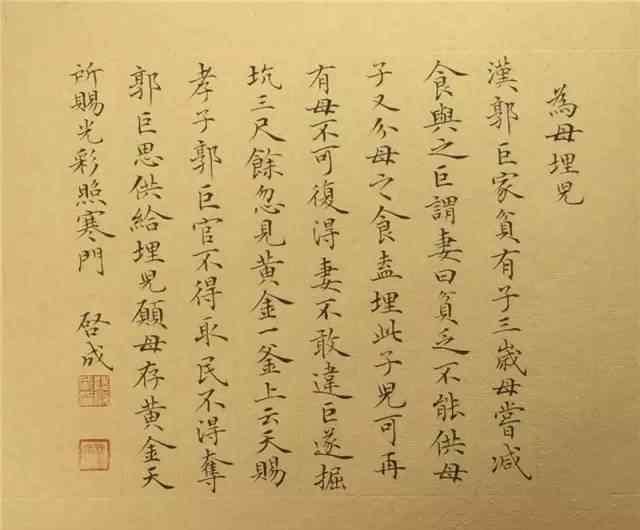 為母埋兒
漢郭巨家貧有子三歲母嘗減
食與之巨謂妻曰貧乏不能供母
子又分母之食盍埋此子兒可再
有母不可復得妻不敢違巨遂掘
坑三尺餘忽見黃金一釜上云天賜
孝子郭巨官不得取民不得奪
郭巨思供給埋兒願母存黃金天
所賜光彩照寒門 啓成